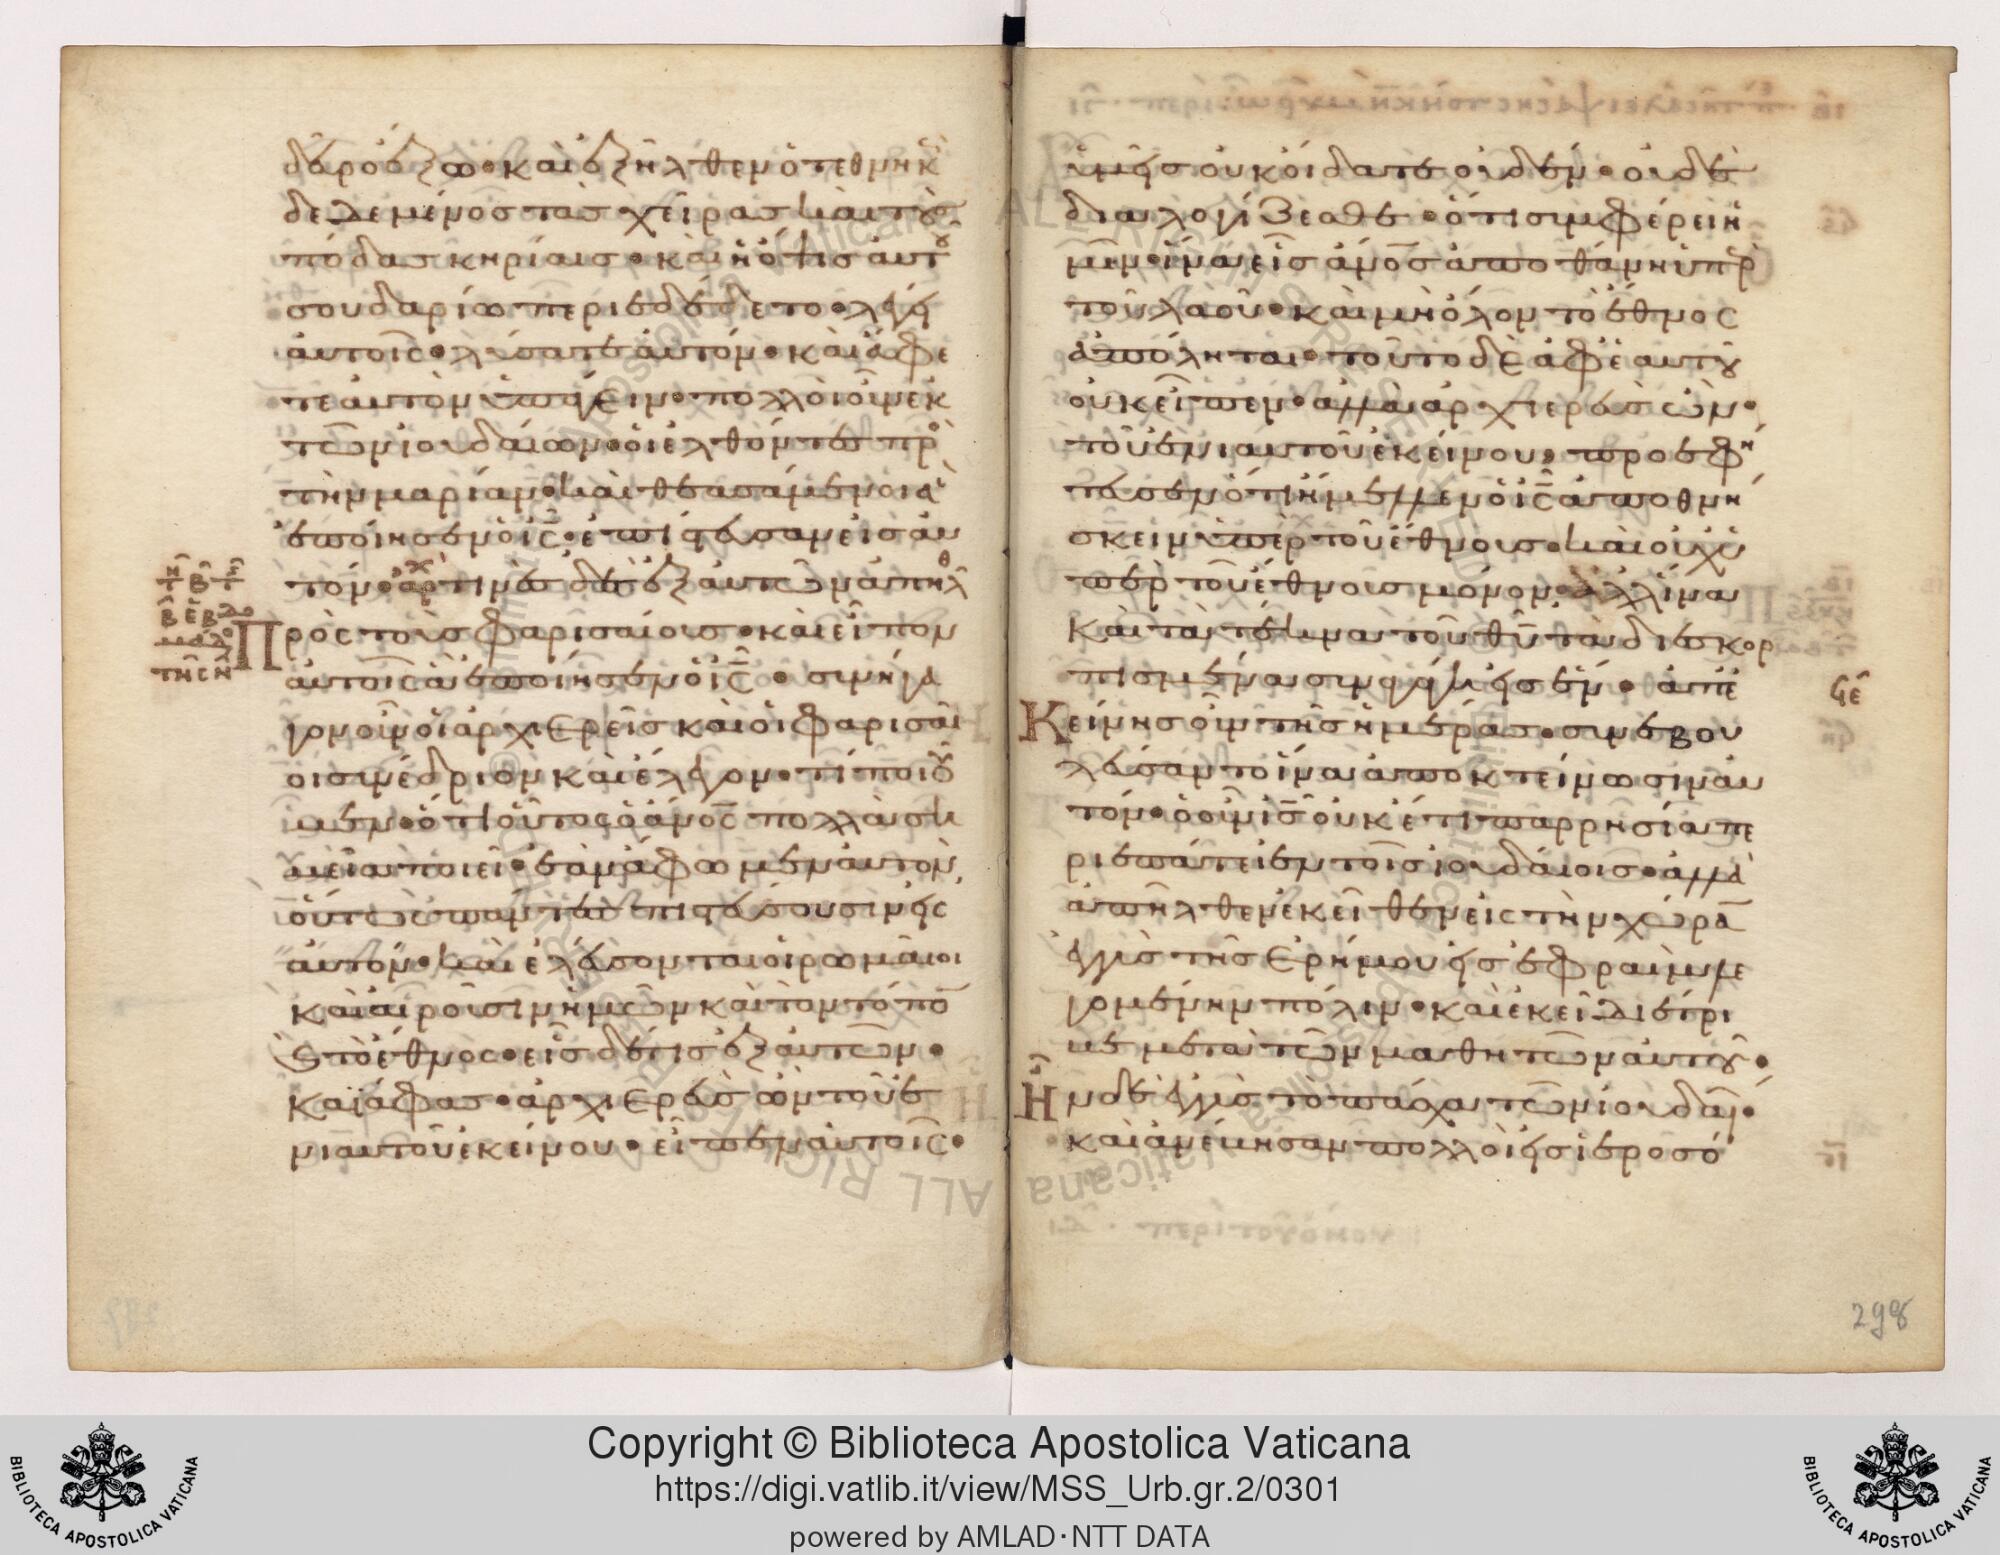 δεῦρο ἔξω· καὶ ἐξῆλθεν ὁ τεθνηκὼ(ς)
δεδεμένος τὰς χεῖρας καὶ τοὺς
πόδας κηρίαις· καὶ ἡ ὄψις αὐτοῦ
σουδαρίω περιεδέδετο· λέγει
αὐτοῖς ὁ ις· λύσατε αὐτόν· καὶ ἄφε
τε αὐτὸν ὑπάγειν· πολλοὶ οὖν ἐκ
τῶν ἰουδαίων· οἱ ἐλθόντες πρὸ(ς)
τὴν μαρίαν· καὶ θεασάμενοι ἃ
ἐποίησεν ὁ ις· ἐπίστευσαν εἰς αὐ
τόν· ἀρχ τινὲς δὲ ἐξ αὐτῶν ἀπῆλθ
Πρὸς τοὺς φαρισαίους· καὶ εἶπον
αὐτοῖς ἃ ἐποίησεν ὁ ις· συνήγα
γον οὖν οἱ ἀρχιερεῖς καὶ οἱ φαρισαῖ
οι συνέδριον καὶ ἔλεγον· τί ποιοῦ
μεν· ὅτι οὗτος ὁ ανος πολλὰ ση
μεῖα ποιεῖ· ἐὰν ἀφῶμεν αὐτὸν
οὕτως πάντες πιστεύσουσιν εἰς
αὐτόν· καὶ ἐλεύσονται οἱ ρωμαῖοι
καὶ αἴρουσιν ἡμῶν καὶ τὸν τόπο(ν)
καὶ τὸ ἔθνος· εἷς δέ τις ἐξ αὐτῶν·
καϊάφας· ἀρχιερεὺς ὢν τοῦ ἐ
νιαυτοῦ ἐκείνου· εἶπεν αὐτοῖς·
ὑμεῖς οὐκ οἴδατε οὐδέν· οὐδὲ
διαλογίζεσθε· ὅτι συμφέρει ἡ
μῖν ἵνα εἷς ανος ἀποθάνη ὑπὲρ
τοῦ λαοῦ· καὶ μὴ ὅλον τὸ ἔθνος
ἀπόληται· τοῦτο δὲ ἀφ' ἑαυτοῦ
οὐκ εἶπεν· ἀλλὰ ἀρχιερεὺς ὢν·
τοῦ ἐνιαυτοῦ ἐκείνου· προεφή
τευσεν ὅτι ἤμελλεν ὁ ις ἀποθνή
σκειν ὑπὲρ τοῦ ἔθνους· καὶ οὐχ ὑ
πὲρ τοῦ ἔθνους μόνον· ἀλλ' ἵνα
καὶ τὰ τέκνα τοῦ θυ τὰ διεσκορ
πισμένα συναγάγη εἰς ἕν· ἀπ' ἐ
Κείνης οὖν τῆς ἡμέρας· συνεβου
λεύσαντο ἵνα ἀποκτείνωσιν αὐ
τόν· ὁ οὖν ις οὐκέτι παρρησία πε
ριεπάτει ἐν τοῖς ἰουδαίοις· ἀλλὰ
ἀπῆλθεν ἐκεῖθεν εἰς τὴν χώρα(ν)
ἐγγὺς τῆς ἐρήμου εἰς ἐφραὶμ λε
γομένην πόλιν· καὶ ἐκεῖ διέτρι
βε μετὰ τῶν μαθητῶν αὐτοῦ·
Ἦν δὲ ἐγγὺς τὸ πάσχα τῶν ἰουδαί·
καὶ ἀνέβησαν πολλοὶ εἰς ἱεροσό
298
BIBLIOTECA APOSTOLICA VATICANA
Copyright © Biblioteca Apostolica Vaticana
https://digi.vatlib.it/view/MSS_Urb.gr.2/0301
powered by AMLAD·NTT DATA
BIBLIOTECA APOSTOLICA VATICANA